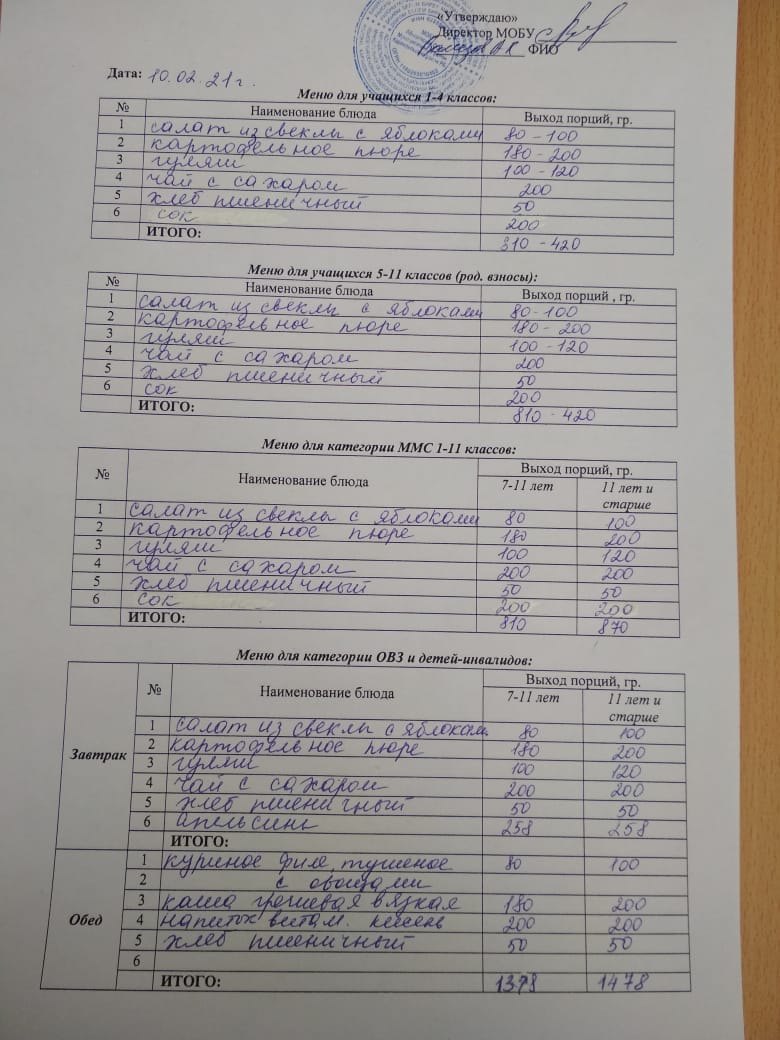 «Утверждаю»
Директор МОБУ
ФИО
Дата: 10.02.21г.
Меню для учащихся 1-4 классов:
№ Наименование блюда Выход порций, гр.
1 салат из свеклы с яблоками 80-100
2 картофельное пюре 180-200
3 гуляш 100-120
4 чай с сахаром 200
5 хлеб пшеничный 50
6 сок 200
ИТОГО: 810-420
Меню для учащихся 5-11 классов (род. взносы):
№ Наименование блюда Выход порций , гр.
1 салат из свеклы с яблоками 80-100
2 картофельное пюре 180-200
3 гуляш 100-120
4 чай с сахаром 200
5 хлеб пшеничный 50
6 сок 200
ИТОГО: 810-420
Меню для категории ММС 1-11 классов:
№ Наименование блюда Выход порций, гр.
7-11 лет 11 лет и старше
1 салат из свеклы с яблоками 80 100
2 картофельное пюре 180 200
3 гуляш 100 120
4 чай с сахаром 200 200
5 хлеб пшеничный 50 50
6 сок 200 200
ИТОГО: 810 870
Меню для категории ОВЗ и детей-инвалидов:
№ Наименование блюда Выход порций, гр.
7-11 лет 11 лет и старше
Завтрак
1 салат из свеклы с яблокам. 80 100
2 картофельное пюре 180 200
3 гуляш 100 120
4 чай с сахаром 200 200
5 хлеб пшеничный 50 50
6 апельсины 258 258
ИТОГО:
Обед
1 куриное филе тушеное 80 100
2 с овощами
3 каша гречневая вязкая 180 200
4 напиток витам. кисель 200 200
5 хлеб пшеничный 50 50
6
ИТОГО: 1378 1478